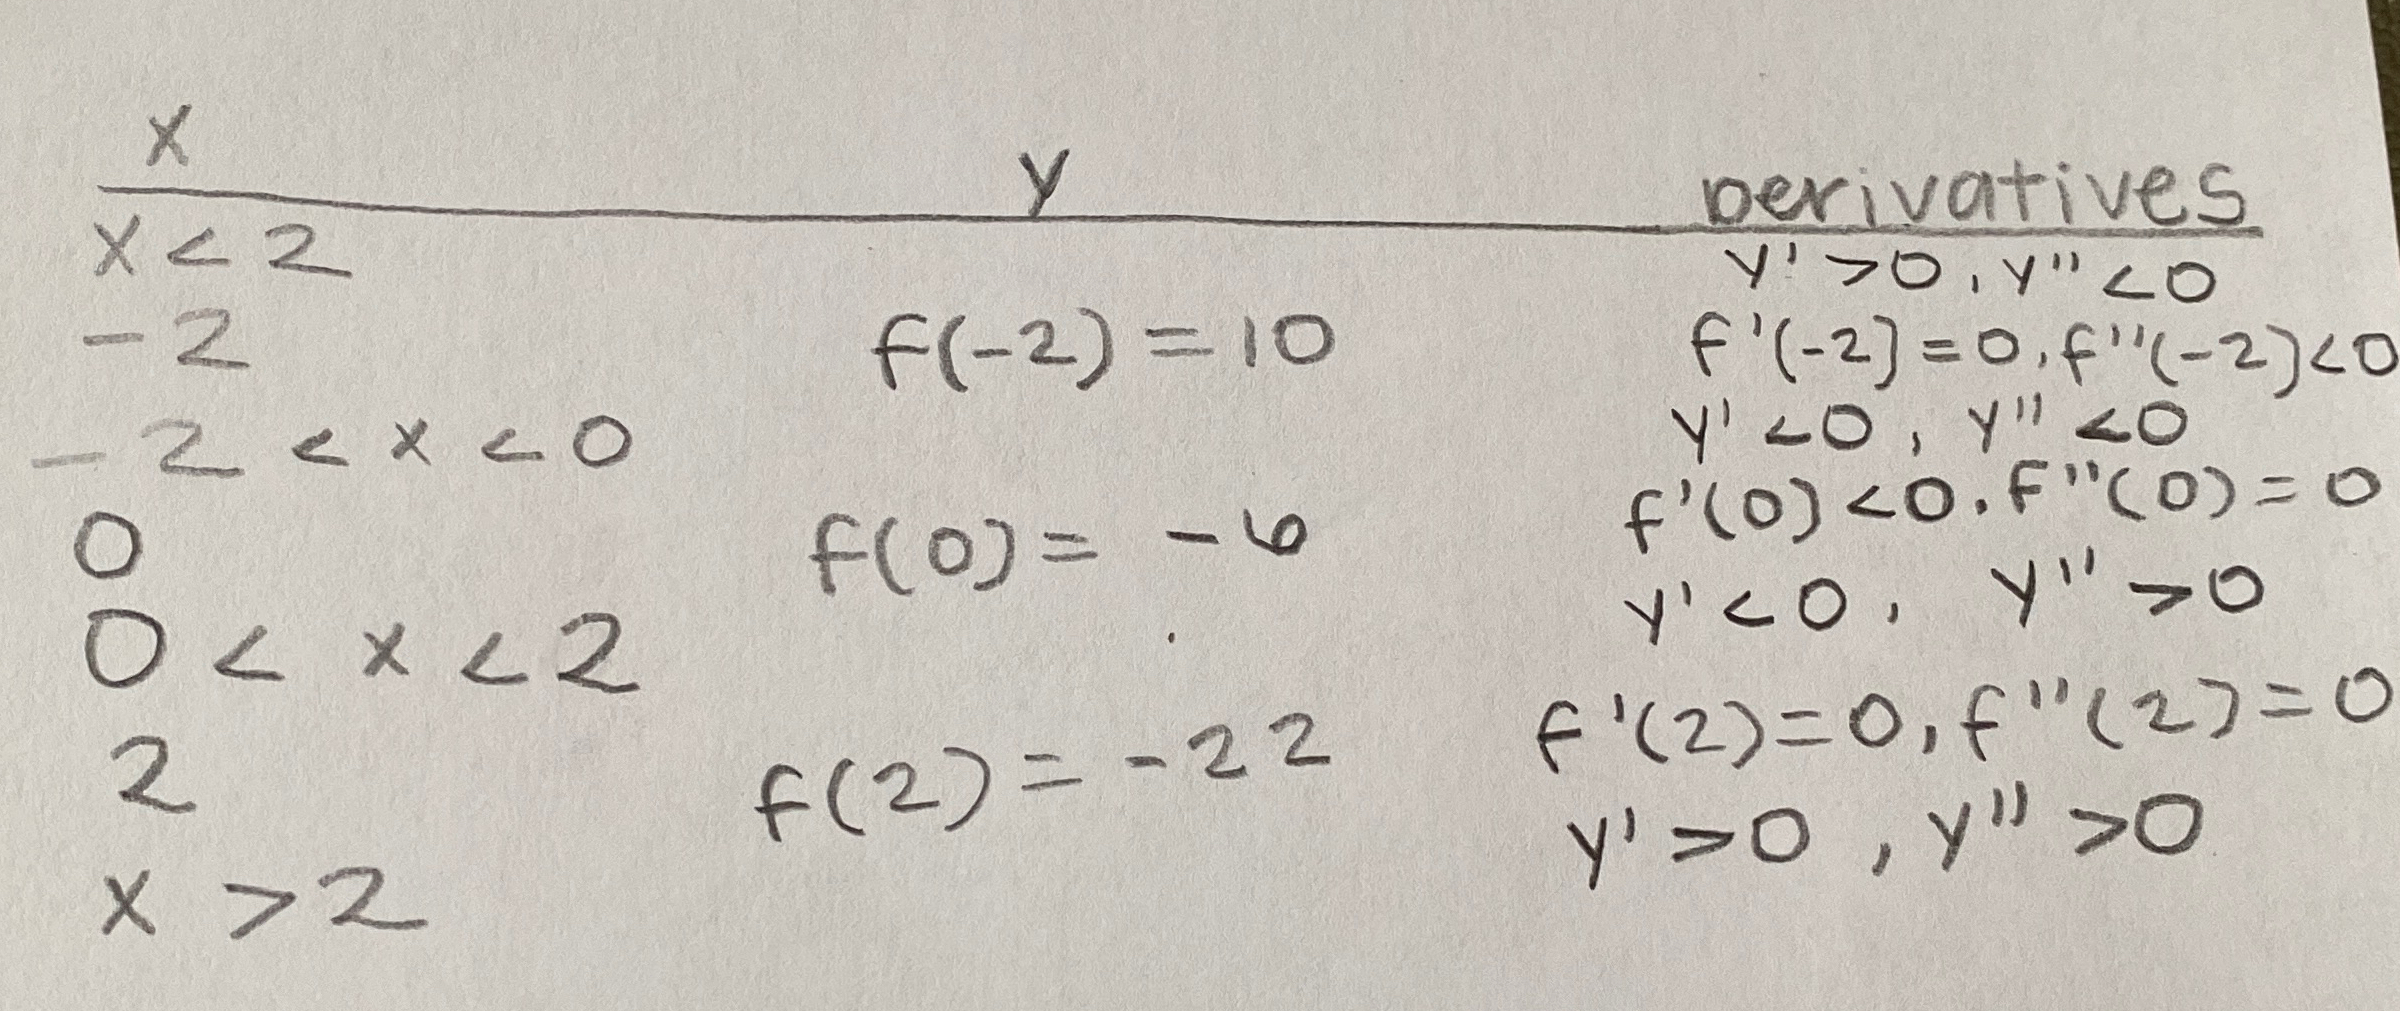 x y Derivatives
x < 2 y' > 0, y" < 0
-2 f(-2) = 10 f'(-2) = 0, f"(-2) < 0
-2 < x < 0 y' < 0, y" < 0
0 f(0) = -6 f'(0) < 0, f"(0) = 0
0 < x < 2 y' < 0, y" > 0
2 f(2) = -22 f'(2) = 0, f"(2) = 0
x > 2 y' > 0, y" > 0